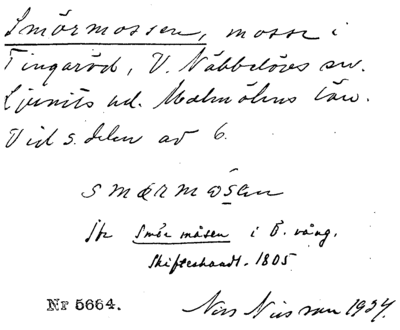 Smörmossen, mosse i
Tingaröd, V. Näbbelövs sn.
Ljunits hd. Malmöhus län.
Vid s. delen av 6.
smærmåsen
Skr Smör måsen i Ö. vång.
Skifteshandl. 1805
Nr 5664.
Nils Nilsson 1924.